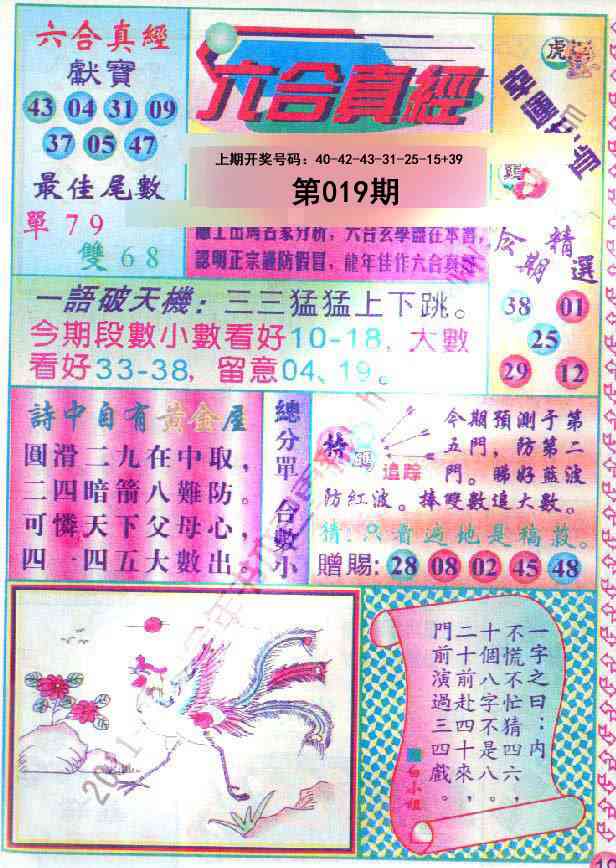 六合真經
獻寶
43 04 31 09
37 05 47
最佳尾數
單 7 9
雙 6 8
六合真經
上期开奖号码：40-42-43-31-25-15+39
第019期
認明正宗謹防假冒，龍年佳作六合真經
虎
今期精選
38 01
25
29 12
一語破天機：三三猛猛上下跳。
今期段數小數看好10-18，大數
看好33-38，留意04、19。
詩中自有黃金屋
圓滑二九在中取，
二四暗箭八難防。
可憐天下父母心，
四一四五大數出。
總分單 合數小
特碼追踪
今期預測于第
五門，防第二
門。睇好藍波
防紅波。捧雙數追大數。
猜：只看遍地是稿菽。
贈賜：28 08 02 45 48
一字之曰：内
不慌不忙猜四六，
十個八字不是八。
二十前赴四十來，
門前演過三四戲。
白小姐